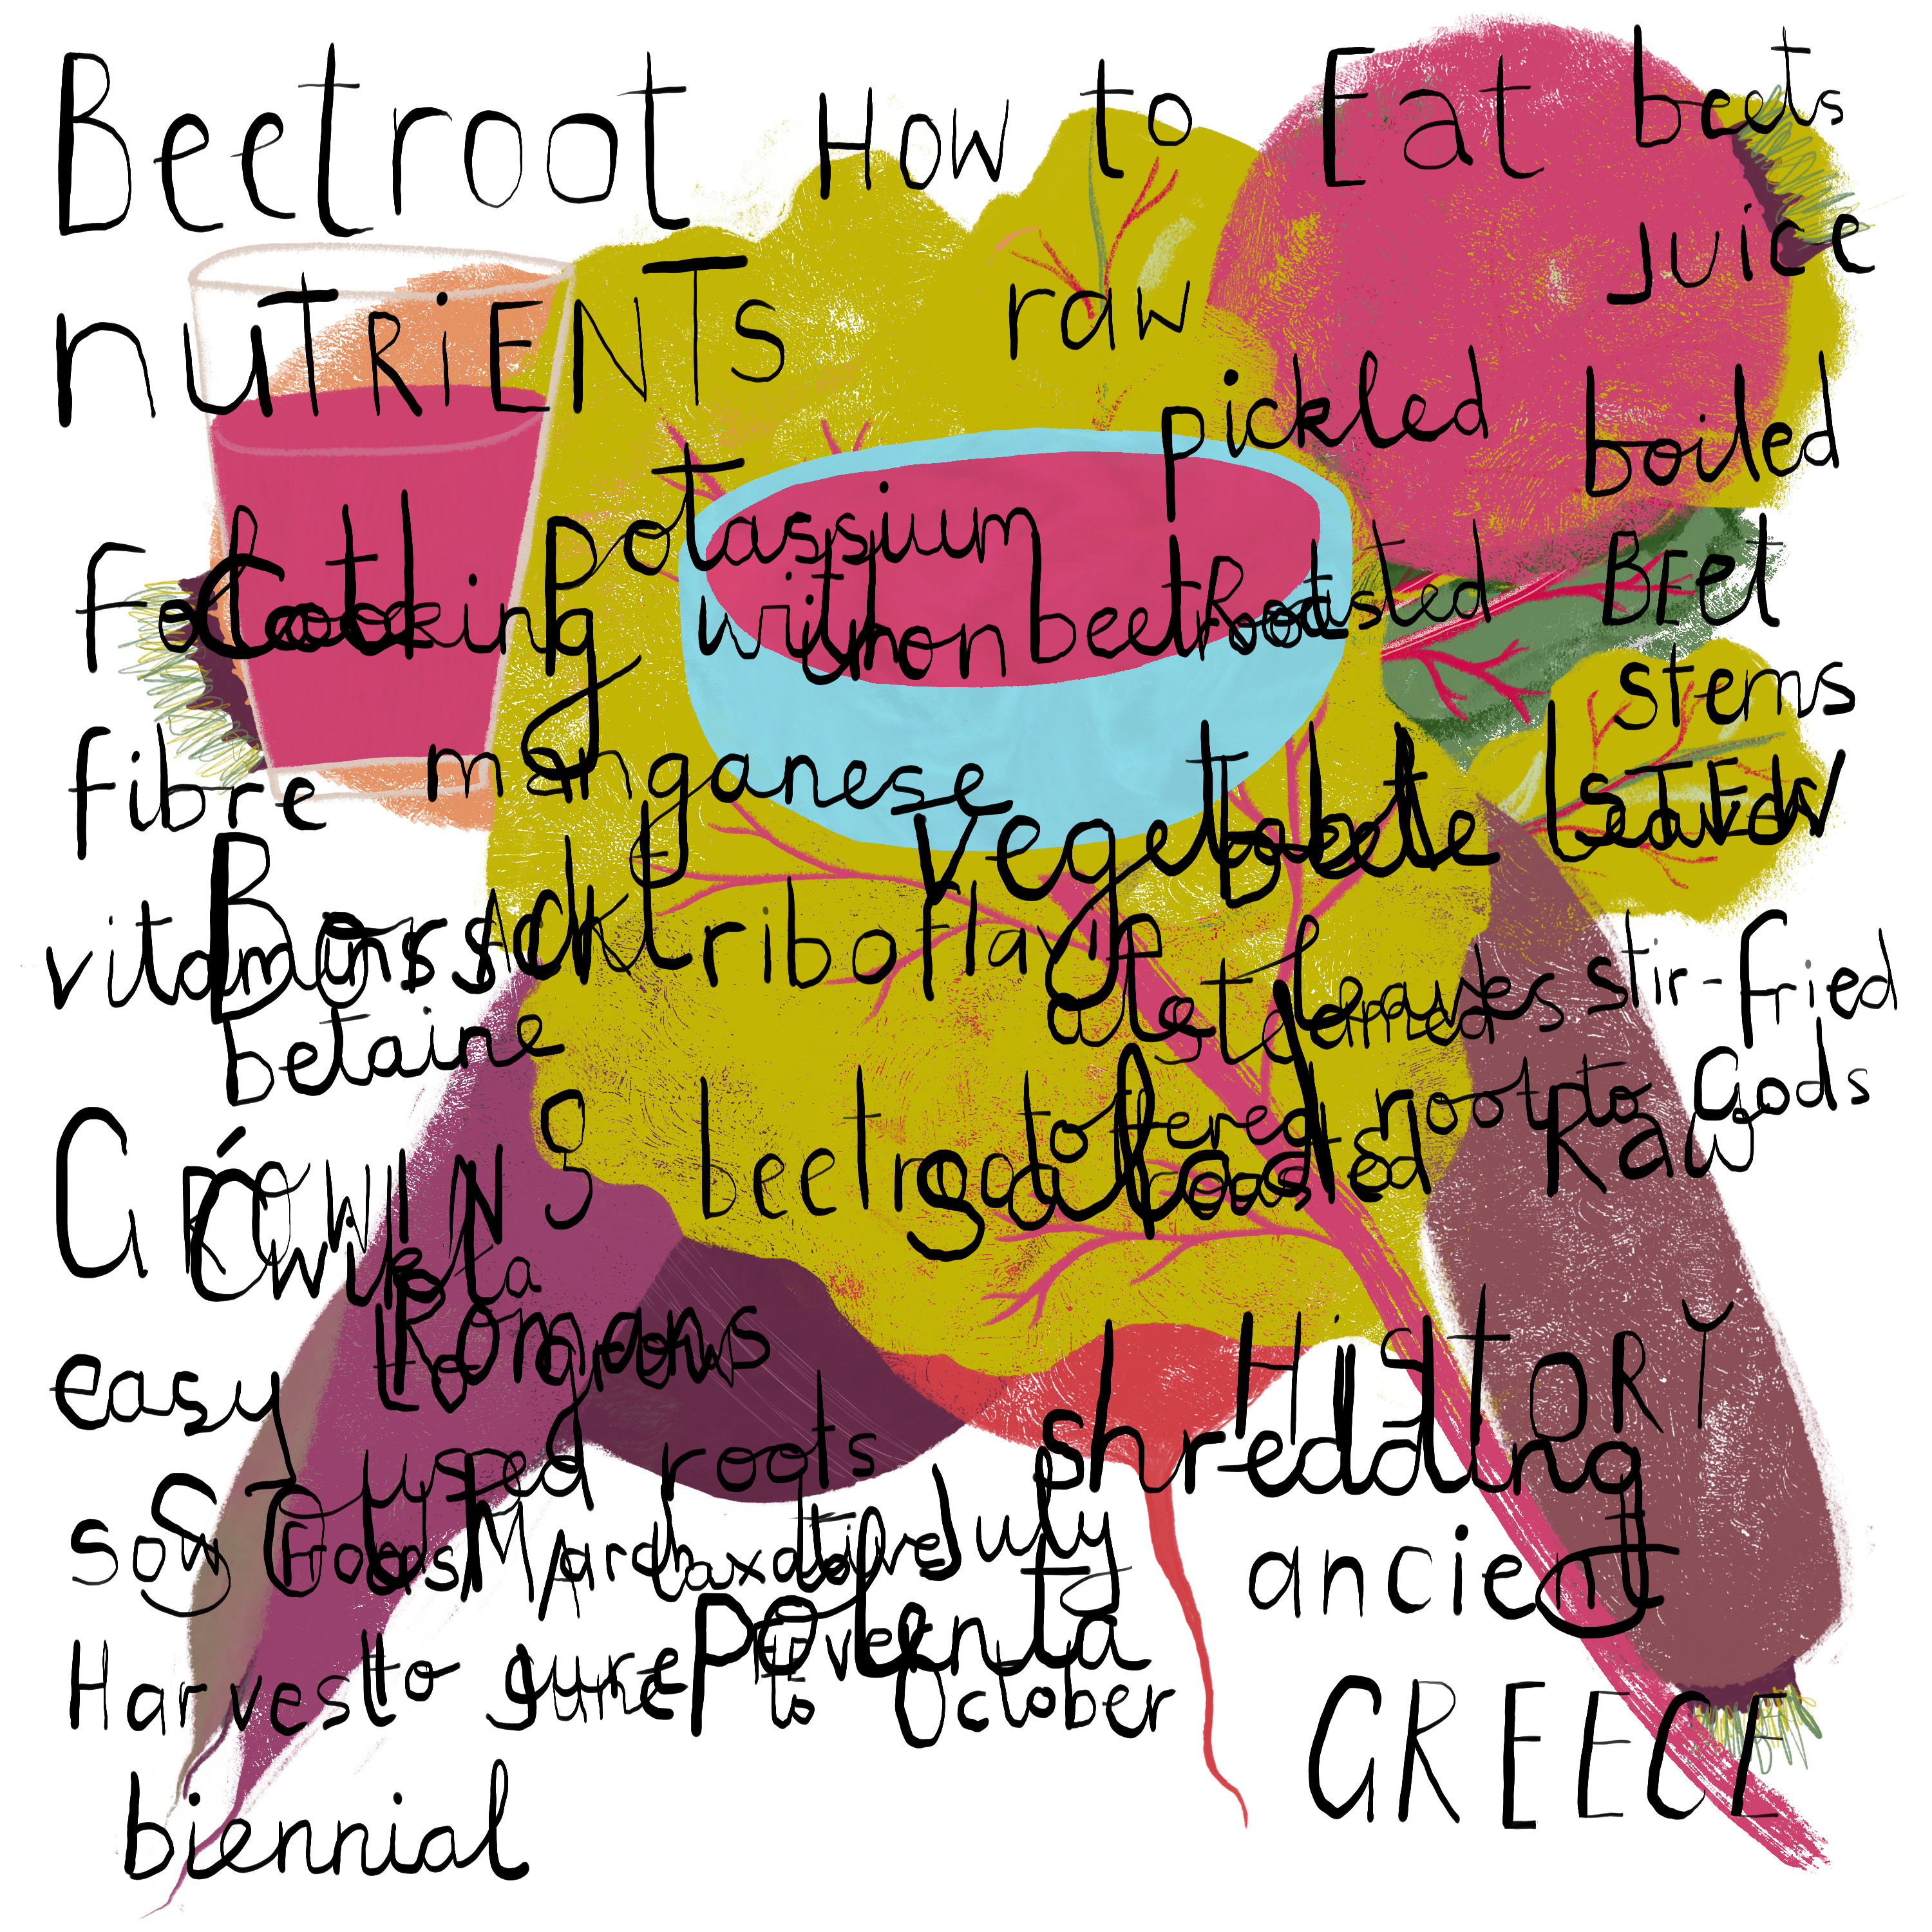 Beetroot How to Eat beets
juice
nUTRiENTS raw
pickled boiled
potassium
Cooking with beetroot Roasted BEEt
iron stems
fibre manganese
vegetable leaves
vitamins riboflavin
ate leaves stir-fried
steamed
betaine
offered root to Gods
GROWING beetroot goat roasted Raw
Ćwikła
Romans HiSTORY
easy to grow
used roots shredding
sow March July ancient
laxative
polenta
Harvest June to October
to cure fever
GREECE
biennial